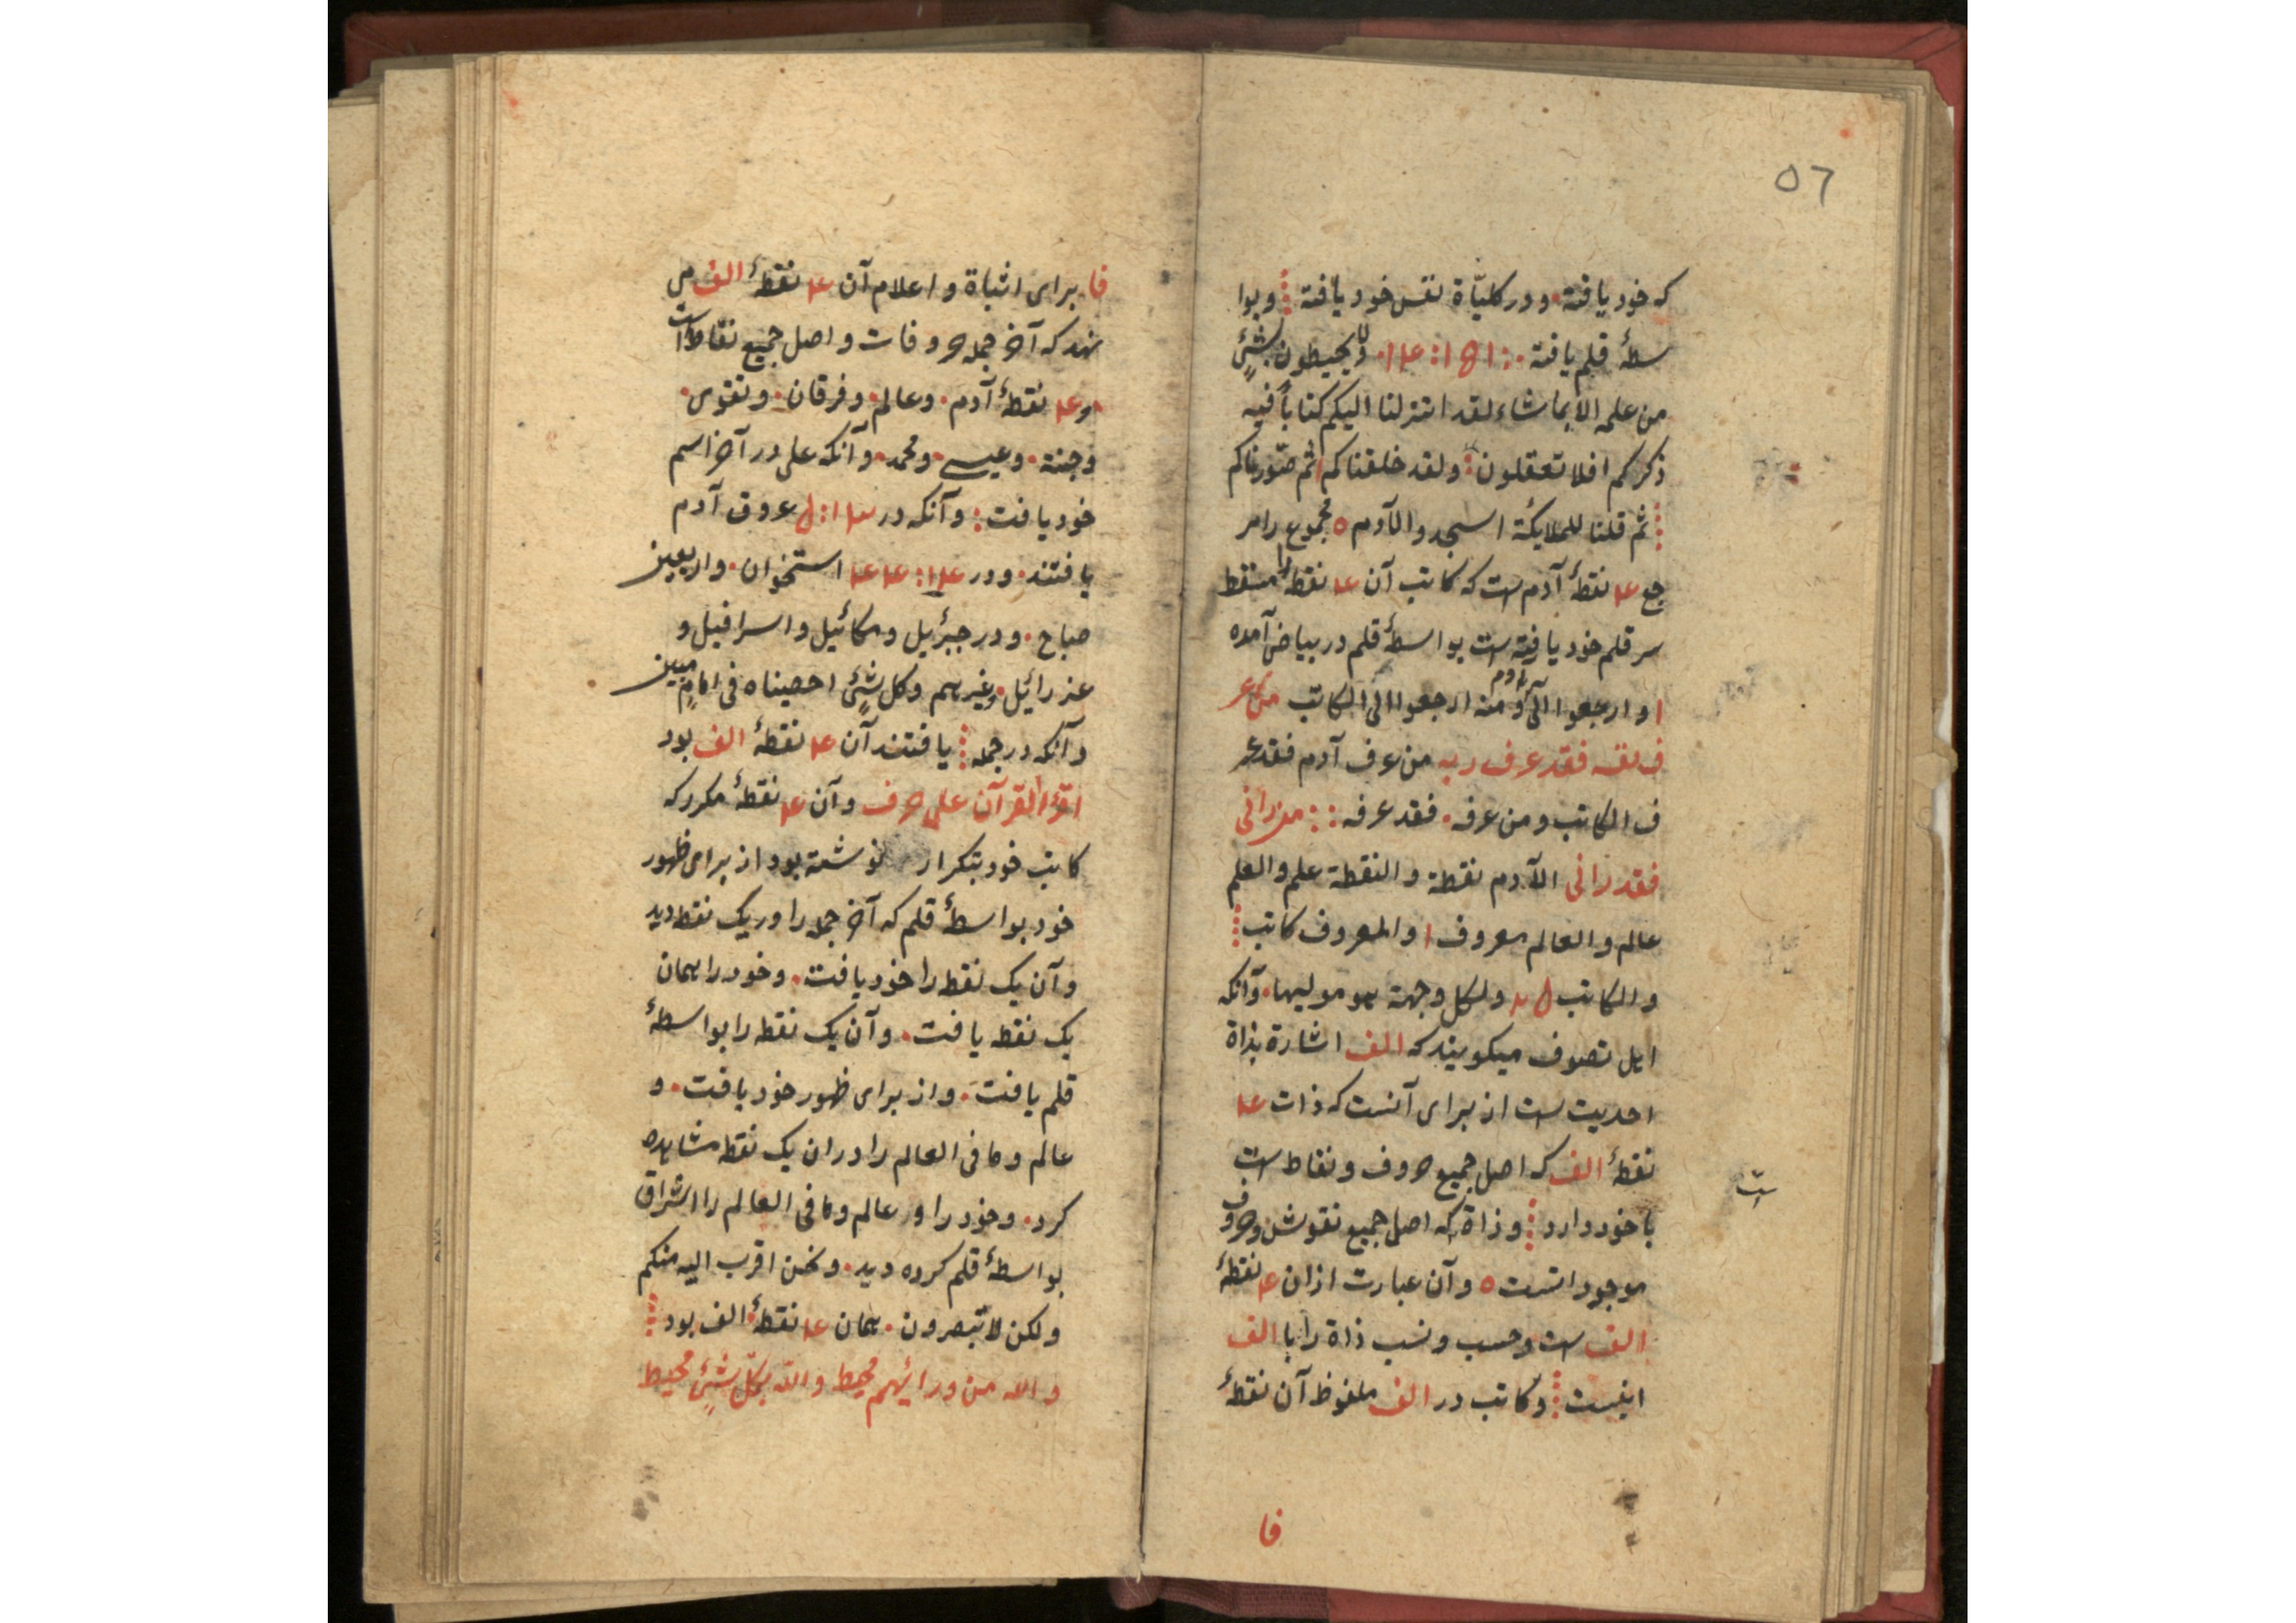 ٥٦
که خود یافته · و در کلیّاة نفس خود یافته ⁞ و بوا
سطهٔ قلم یافته · ولا یحیطون بشیٍٔ
من علمه الا بما شاء لقد انزلنا الیکم کتاباً فیه
ذکرکم افلا تعقلون ⁞ ولقد خلقناکم ثم صوّرناکم
⁞ ثم قلنا للملایکة اسجدوا لآدم ٥ مجموع را مر
جع نقطهٔ آدم ست که کاتب آن نقطه را مسقط
سر قلم خود یافته ست بواسطهٔ قلم در بیاض آمده
ا و ارجعوا الی آدم و منه ارجعوا الی الکاتب من عر
ف نفسه فقد عرف ربه من عرف آدم فقد عر
ف الکاتب و من عرفه · فقد عرفه : : من رانی
فقد رانی الآدم نقطة و النقطة علم و العلم
عالم و العالم معروف ا و المعروف کاتب ⁞
و الکاتب و لکل وجهة هو مولیها · و آنکه
اهل تصوف میکویند که الف اشارة بذاة
احدیت ست از برای آنست که ذات
نقطهٔ الف که اصل جمیع حروف و نقاط است
با خود دارد ⁞ و ذاة که اصل جمیع نقوش و حروف
موجود است ٥ و آن عبارت ازان نقطهٔ
الف ست و حسب و نسب ذاة را با الف
اینست ⁞ و کاتب در الف ملفوظ آن نقطهٔ
ت
فا
فا برای اثباة و اعلام آن نقطهٔ الف می
نهد که آخر جمله حروفات و اصل جمیع نقاط است
و نقطهٔ آدم · و عالم · و فرقان · و تقوی ·
و جنة · و عیسی · و محمد · و آنکه علی در آخر اسم
خود یافت : و آنکه در عروق آدم
یافتند · و در استخوان · و اربعین
صباح · و در جبرٔیل و مکائیل و اسرافیل و
عزرائیل · و غیرهم و کل شیٍٔ احصیناه فی امامٍ مبین
و آنکه در جمله ⁞ یافتند آن نقطهٔ الف بود
اقرٔا القرآن علی حرف و آن نقطهٔ مکرر که
کاتب خود بتکرار نوشته بود از برای ظهور
خود بواسطهٔ قلم که آخر جمله را در یک نقطه دید
و آن یک نقطه را خود یافت · و خود را همان
یک نقطه یافت · و آن یک نقطه را بواسطهٔ
قلم یافت · و از برای ظهور خود یافت · و
عالم و ما فی العالم را در ان یک نقطه مشاهده
کرد · و خود را در عالم و ما فی العالم را اشراق
بواسطهٔ قلم کرده دید · و نحن اقرب الیه منکم
ولکن لا تبصرون · همان نقطهٔ الف بود ⁞
و الله من ورائهم محیط و الله بکل شیٍٔ محیط